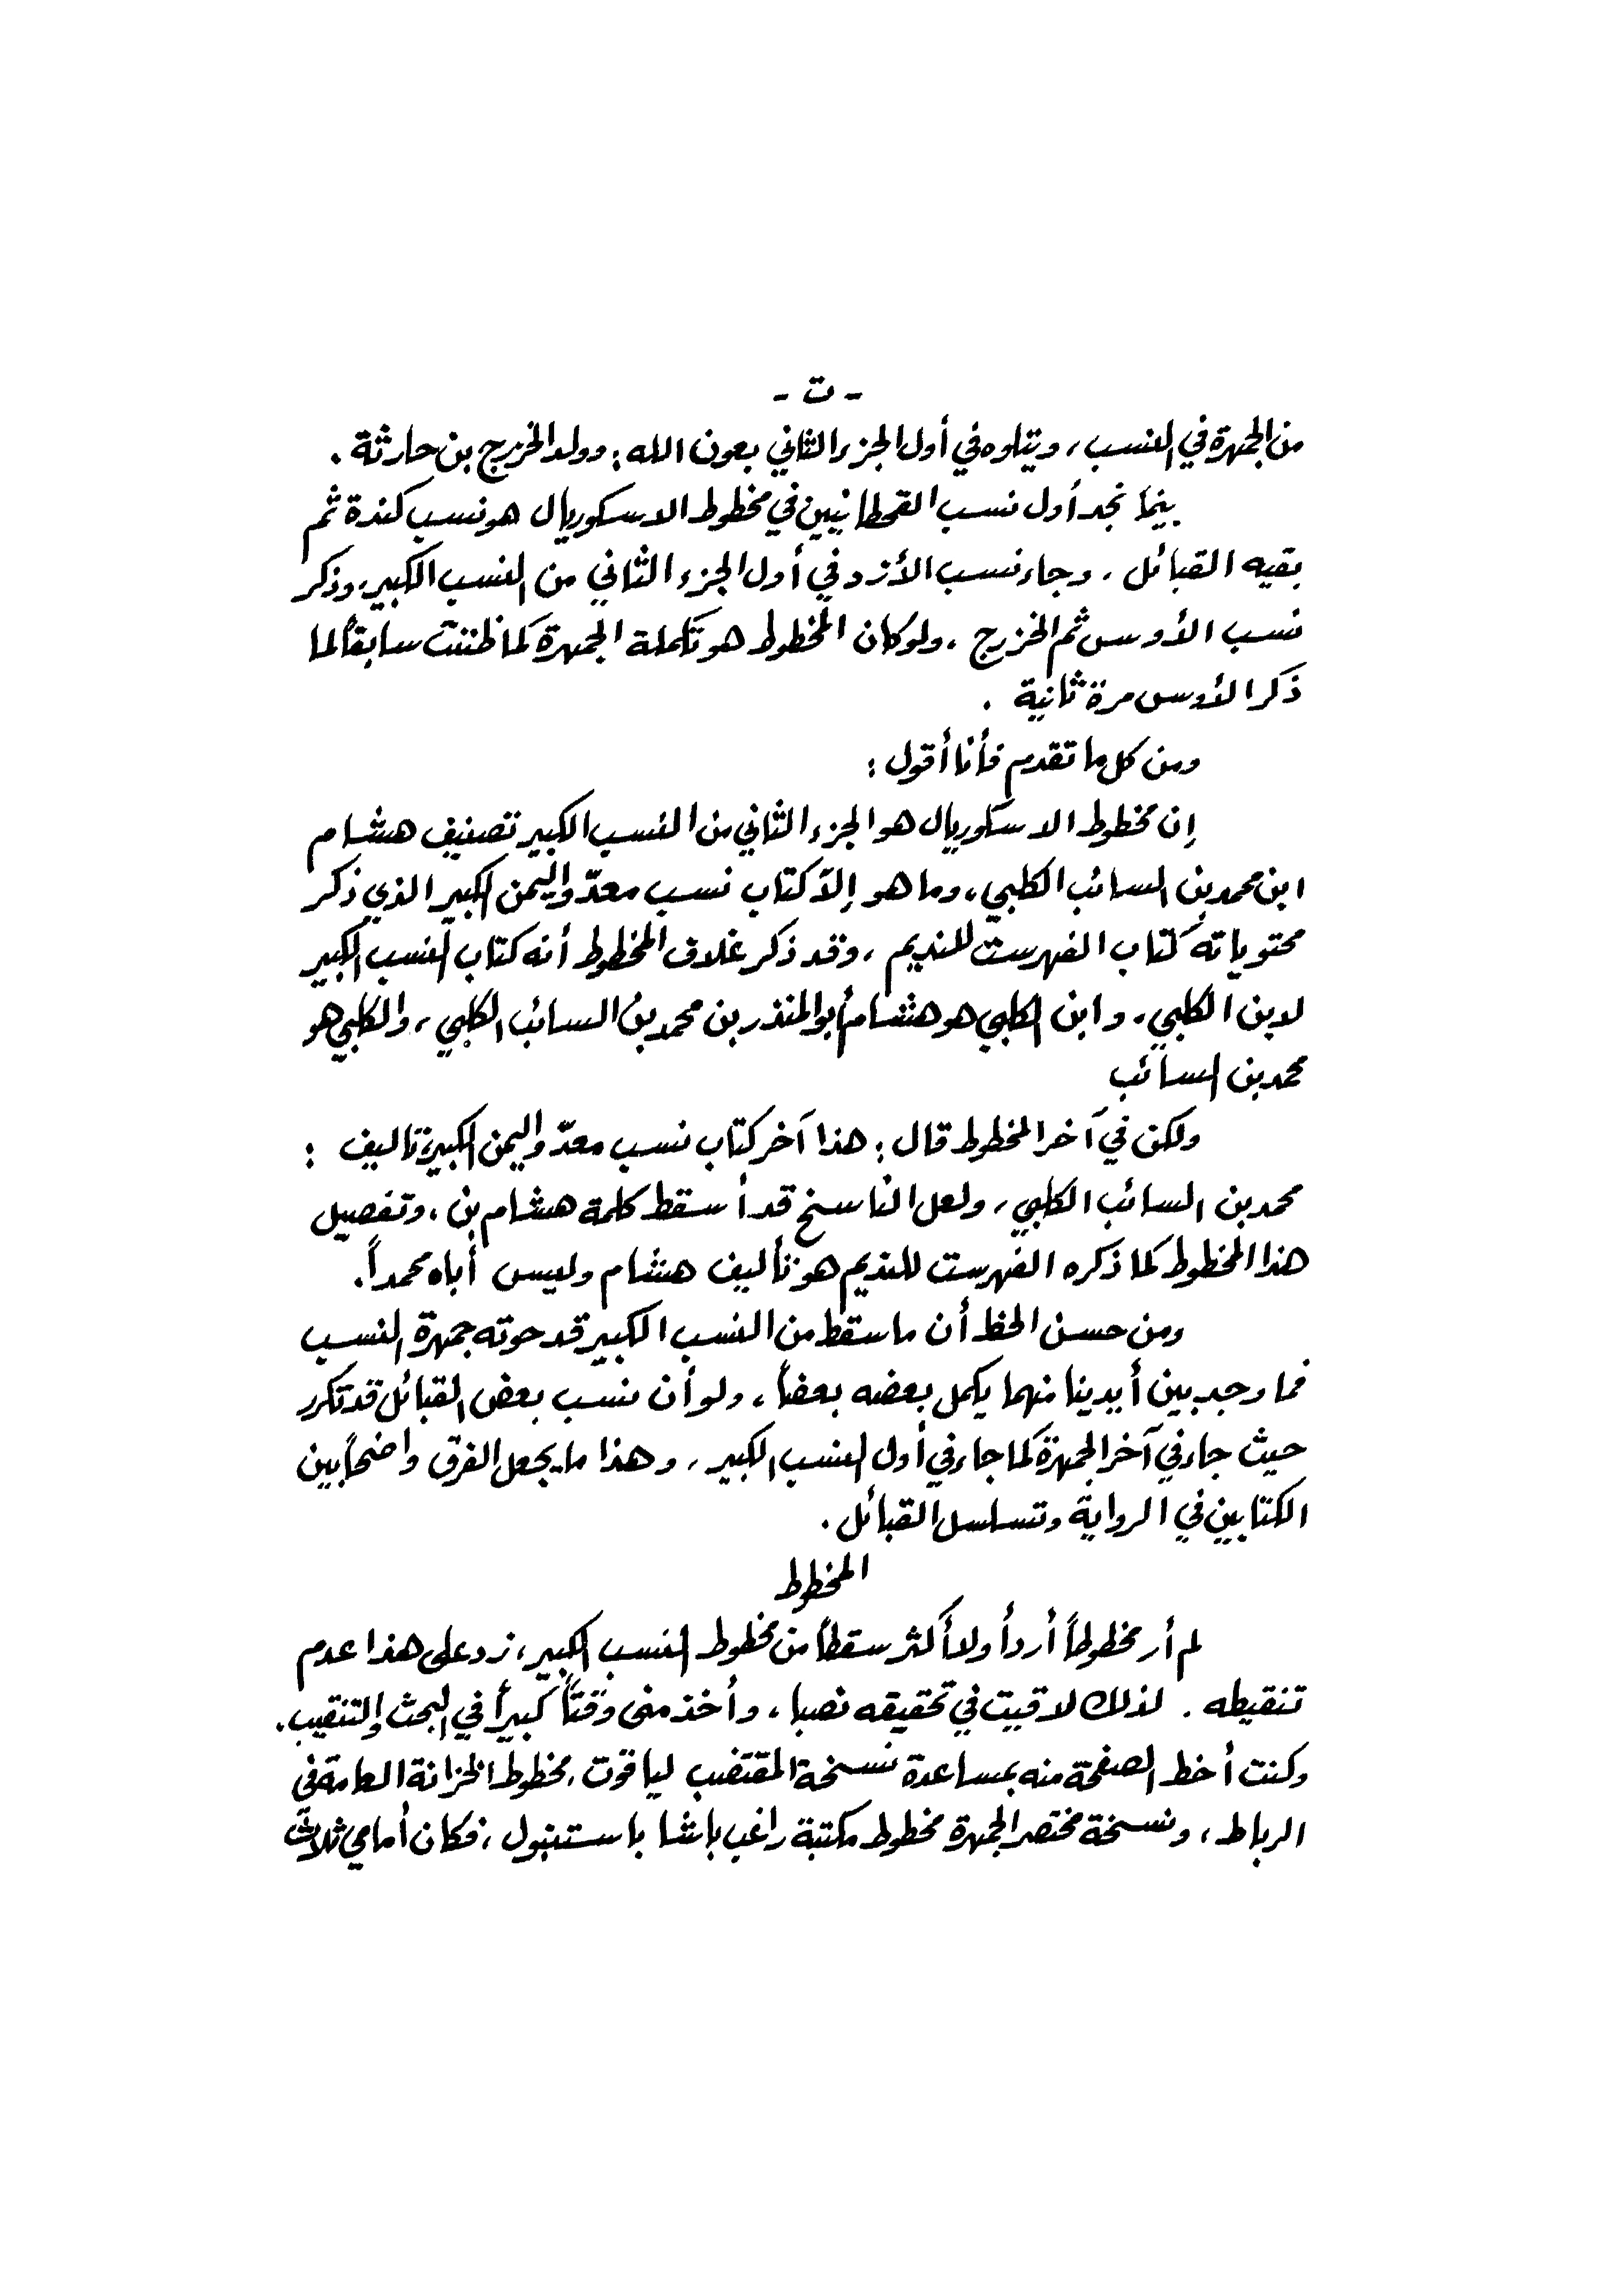 - ت -
من الجمهرة في النسب، ويتلوه في أول الجزء الثاني بعون الله: وولد الخزرج بن حارثة.
بينما نجد أول نسب القحطانيين في مخطوط الاسكوريال هو نسب كندة ثم
بقيه القبائل، وجاء نسب الأزد في أول الجزء الثاني من النسب الكبير، وذكر
نسب الأوس ثم الخزرج، ولو كان المخطوط هو تكملة الجمهرة كما ظننت سابقاً لما
ذكر الأوس مرة ثانية.
ومن كل ما تقدم فأنا أقول:
إن مخطوط الاسكوريال هو الجزء الثاني من النسب الكبير تصنيف هشام
ابن محمد بن السائب الكلبي، وما هو إلاّ كتاب نسب معدّ واليمن الكبير الذي ذكر
محتوياته كتاب الفهرست للنديم، وقد ذكر غلاف المخطوط أنه كتاب النسب الكبير
لابن الكلبي، وابن الكلبي هو هشام أبو المنذر بن محمد بن السائب الكلبي، والكلبي هو
محمد بن السائب
ولكن في آخر المخطوط قال: هذا آخر كتاب نسب معدّ واليمن الكبير تاليف:
محمد بن السائب الكلبي، ولعل الناسخ قد أسقط كلمة هشام بن، وتفصيل
هذا المخطوط كما ذكره الفهرست للنديم هو تأليف هشام وليس أباه محمداً.
ومن حسن الحظ أن ما سقط من النسب الكبير قد حوته جمهرة النسب
فما وجد بين أيدينا منهما يكمل بعضه بعضاً، ولو أن نسب بعض القبائل قد تكرر
حيث جاء في آخر الجمهرة كما جاء في أول النسب الكبير، وهذا ما يجعل الفرق واضحاً بين
الكتابين في الرواية وتسلسل القبائل.
المخطوط
لم أر مخطوطاً أردأ ولا أكثر سقطاً من مخطوط النسب الكبير، زد على هذا عدم
تنقيطه. لذلك لاقيت في تحقيقه نصبا، وأخذ مني وقتاً كبيراً في البحث والتنقيب.
وكنت أخط الصفحة منه بمساعدة نسخة المقتضب لياقوت، مخطوط الخزانة العامة في
الرباط، ونسخة مختصر الجمهرة مخطوط مكتبة راغب باشا باستنبول، فكان أمامي ثلاث